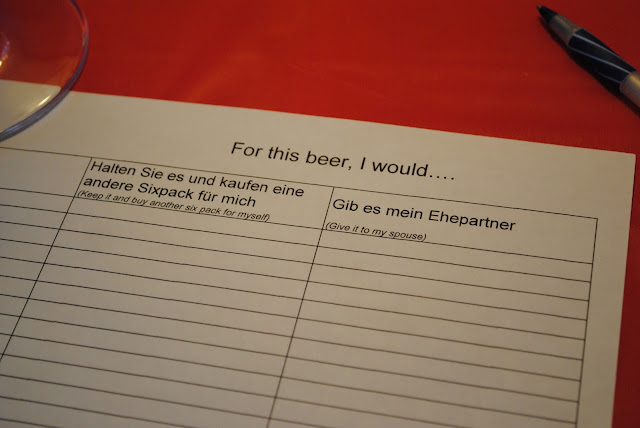 For this beer, I would….
Halten Sie es und kaufen eine
andere Sixpack für mich
(Keep it and buy another six pack for myself)
Gib es mein Ehepartner
(Give it to my spouse)